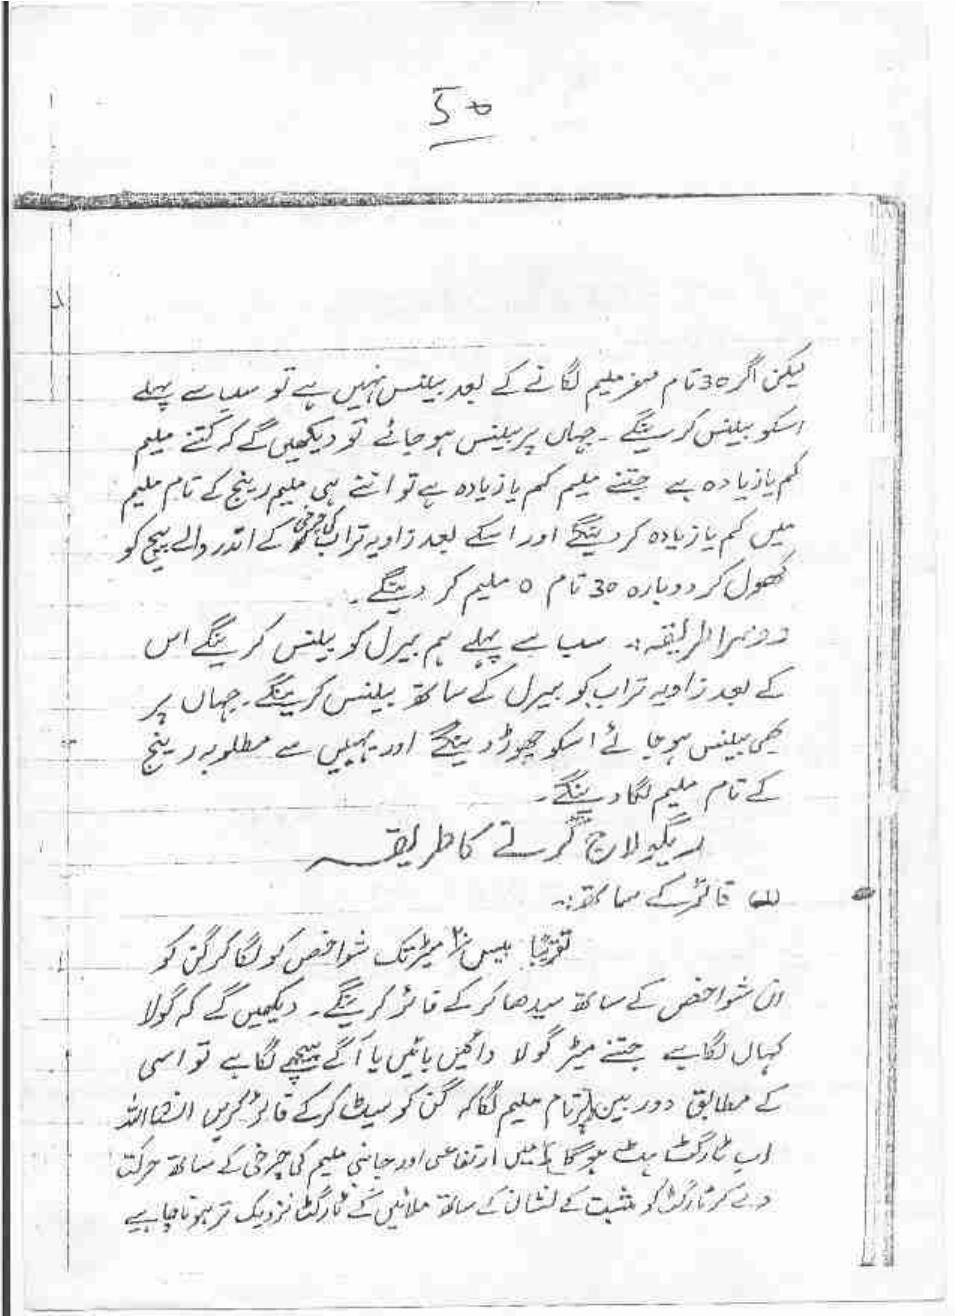 50
لیکن اگر 30 تام صفر ملیم لگانے کے بعد بیلنس نہیں ہے تو سب سے پہلے
اسکو بیلنس کرینگے ۔ جہاں پر بیلنس ہو جائے تو دیکھیں گے کہ کتنے ملیم
کم یا زیادہ ہے جتنے ملیم کم یا زیادہ ہے تو اتنے ہی ملیم رینج کے تام ملیم
میں کم یا زیادہ کر دینگے اور اسکے بعد زاویہ تراب کی چرخی کے اندر والے پیچ کو
کھول کر دوبارہ 30 تام 0 ملیم کر دینگے ۔
دوسرا طریقہ :۔ سب سے پہلے ہم بیرل کو بیلنس کرینگے اس
کے بعد زاویہ تراب کو بیرل کے ساتھ بیلنس کرینگے ۔ جہاں پر
بھی بیلنس ہو جائے اسکو چھوڑ دینگے اور یہیں سے مطلوبہ رینج
کے تام ملیم لگا دینگے ۔
کرنے کا طریقہ
فائر کے ساتھ :۔
تقریباً بیس ۲۰ میٹر تک شواخص کو لگا کر گن کو
ان شواخص کے ساتھ سیدھا کر کے فائر کرینگے ۔ دیکھیں گے کہ گولا
کہاں لگا ہے جتنے میٹر گولا دائیں بائیں یا آگے پیچھے لگا ہے تو اسی
کے مطابق دوربین پر تام ملیم لگا کر گن کو سیٹ کر کے فائر کریں انشاءاللہ
اب ٹارگٹ ہٹ ہو گا میں ارتفاعی اور جانبی ملیم کی چرخی کے ساتھ حرکت
دے کر ٹارگٹ کو مثبت کے نشان کے ساتھ ملائیں گے ٹارگٹ نزدیک تر ہونا چاہیے